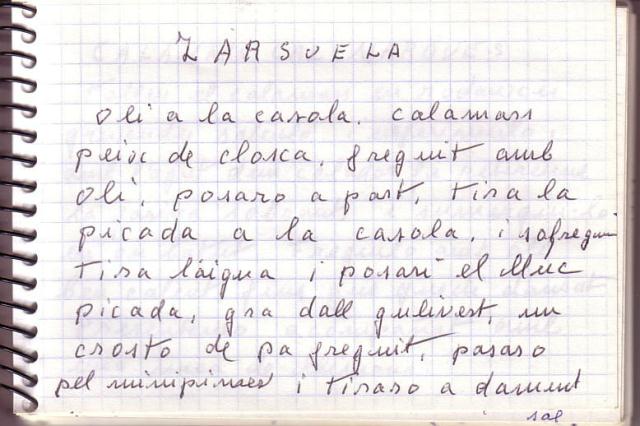 ZARSUELA
Oli a la casola. calamars
peix de closca, freguit amb
oli, posaro a part, tira la
picada a la casola, i sofregui
tira l'aigua i posari el lluc
picada, gra dall gulivest, un
crosto de pa freguit, pasaro
pel minipimer i tiraro a damunt
sal